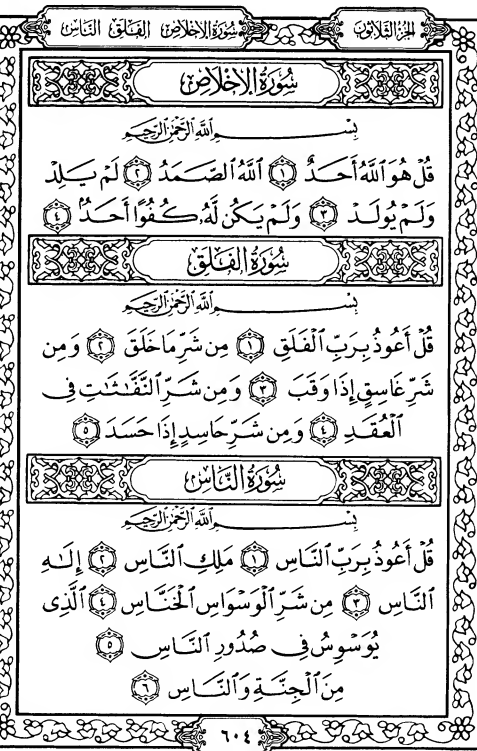 الجزء الثلاثون
سورة الإخلاص الفلق الناس
سُورَةُ الإِخْلَاصِ
بِسْمِ اللَّهِ الرَّحْمَٰنِ الرَّحِيمِ
قُلْ هُوَ اللَّهُ أَحَدٌ ١ اللَّهُ الصَّمَدُ ٢ لَمْ يَلِدْ
وَلَمْ يُولَدْ ٣ وَلَمْ يَكُن لَّهُۥ كُفُوًا أَحَدٌۢ ٤
سُورَةُ الفَلَقِ
بِسْمِ اللَّهِ الرَّحْمَٰنِ الرَّحِيمِ
قُلْ أَعُوذُ بِرَبِّ الْفَلَقِ ١ مِن شَرِّ مَا خَلَقَ ٢ وَمِن
شَرِّ غَاسِقٍ إِذَا وَقَبَ ٣ وَمِن شَرِّ النَّفَّٰثَٰتِ فِى
الْعُقَدِ ٤ وَمِن شَرِّ حَاسِدٍ إِذَا حَسَدَ ٥
سُورَةُ النَّاسِ
بِسْمِ اللَّهِ الرَّحْمَٰنِ الرَّحِيمِ
قُلْ أَعُوذُ بِرَبِّ النَّاسِ ١ مَلِكِ النَّاسِ ٢ إِلَٰهِ
النَّاسِ ٣ مِن شَرِّ الْوَسْوَاسِ الْخَنَّاسِ ٤ الَّذِى
يُوَسْوِسُ فِى صُدُورِ النَّاسِ ٥
مِنَ الْجِنَّةِ وَالنَّاسِ ٦
٦٠٤